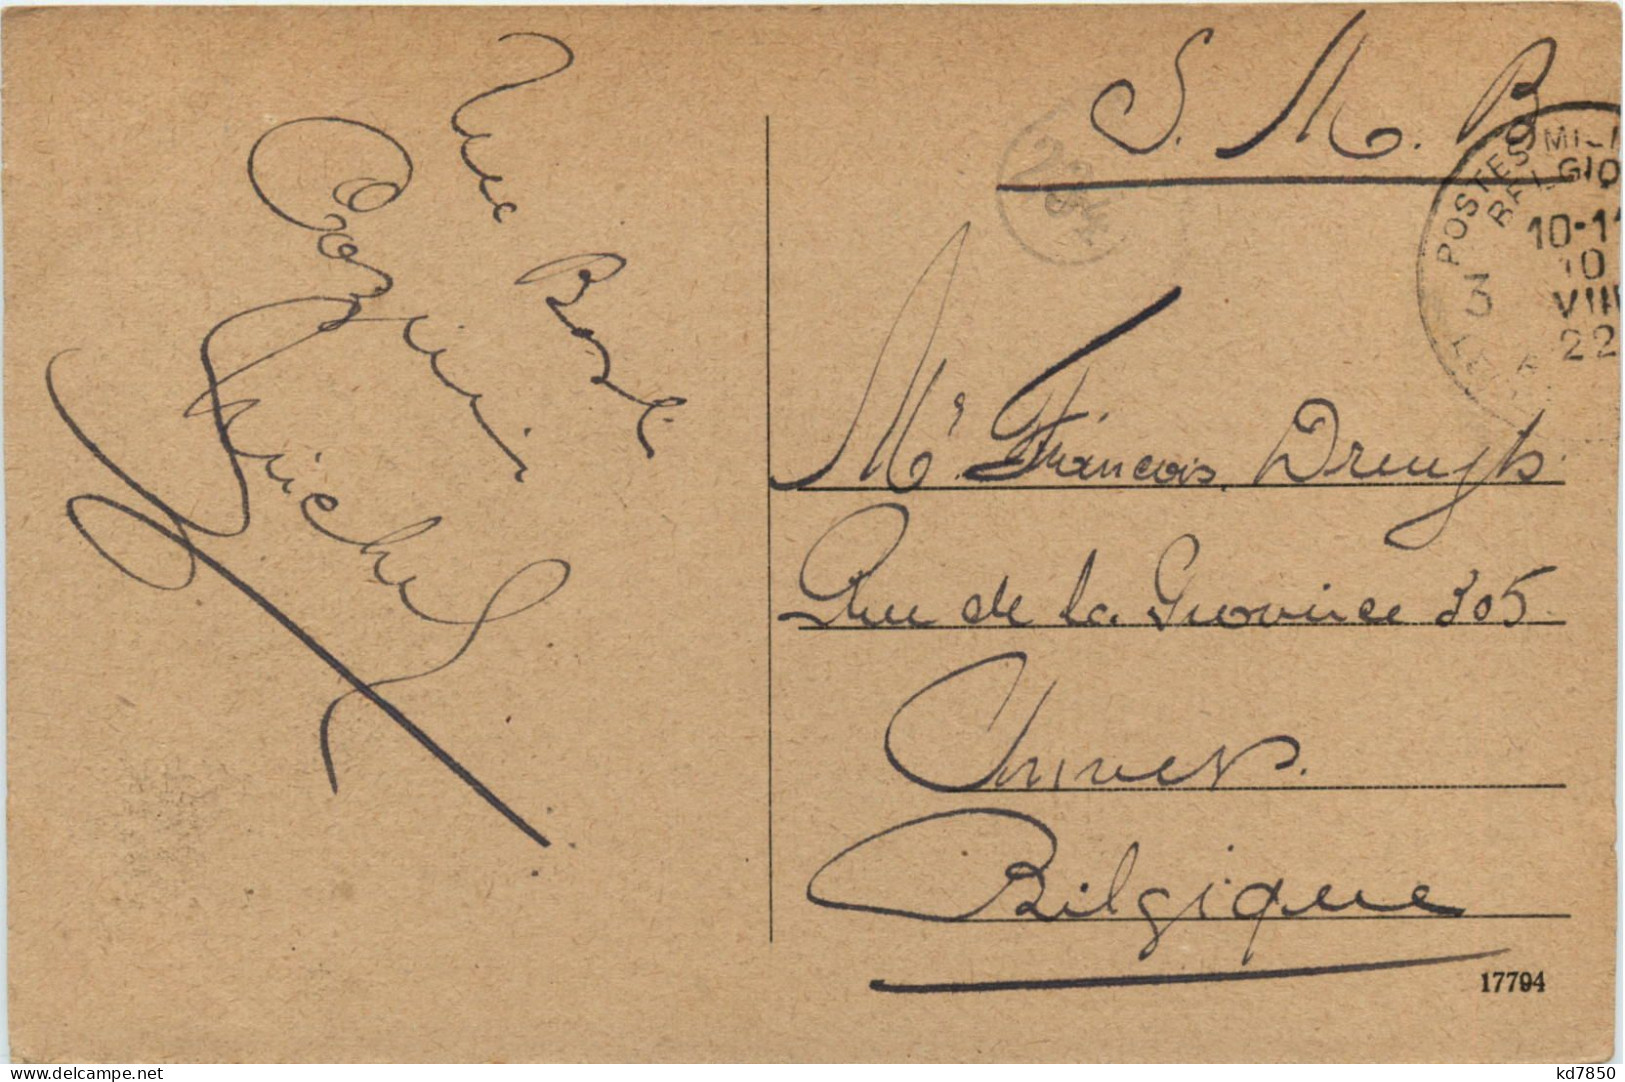 Une Bosh
Cozin
Michel
S. M. B
POSTES MILI
BELGIQ
10-11
10
VIII
22
3
Mr. François Druyts.
Rue de la Province 305.
Anvers.
Belgique
17794
delcampe.net
kd7850